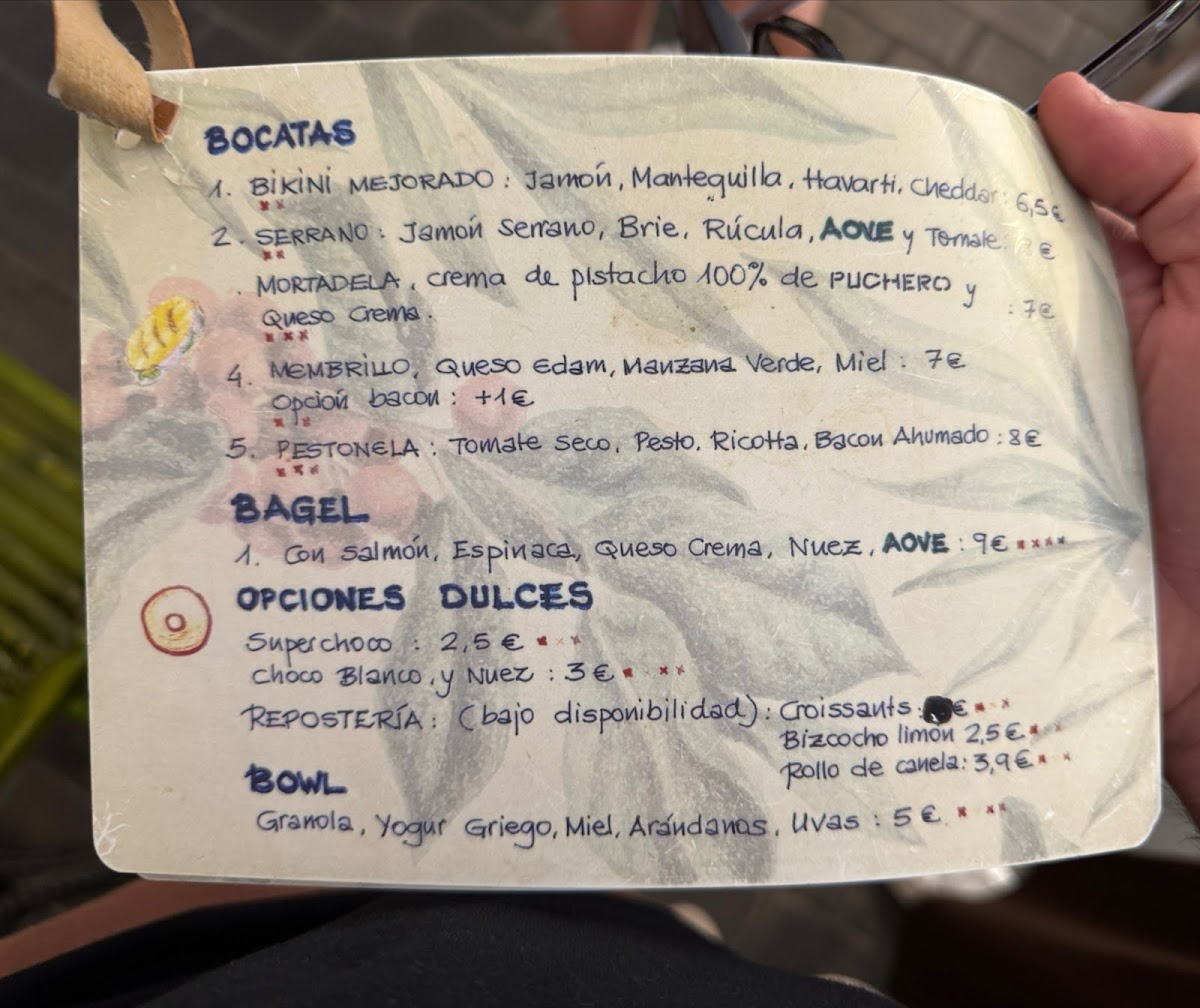 BOCATAS
1. BIKINI MEJORADO : Jamón, Mantequilla, Havarti, Cheddar : 6,5€
2. SERRANO : Jamón Serrano, Brie, Rúcula, AOVE y Tomate: €
. MORTADELA, crema de pistacho 100% de PUCHERO y : 7€
Queso Crema.
4. MEMBRILLO, Queso Edam, Manzana Verde, Miel : 7€
Opción bacon : +1€
5. PESTONELA : Tomate Seco, Pesto, Ricotta, Bacon Ahumado : 8€
BAGEL
1. Con Salmón, Espinaca, Queso Crema, Nuez, AOVE : 9€
OPCIONES DULCES
Superchoco : 2,5 €
Choco Blanco y Nuez : 3€
REPOSTERÍA : (bajo disponibilidad) : Croissants : €
Bizcocho limón 2,5€
Rollo de canela: 3,9€
BOWL
Granola, Yogur Griego, Miel, Arándanos, Uvas : 5 €